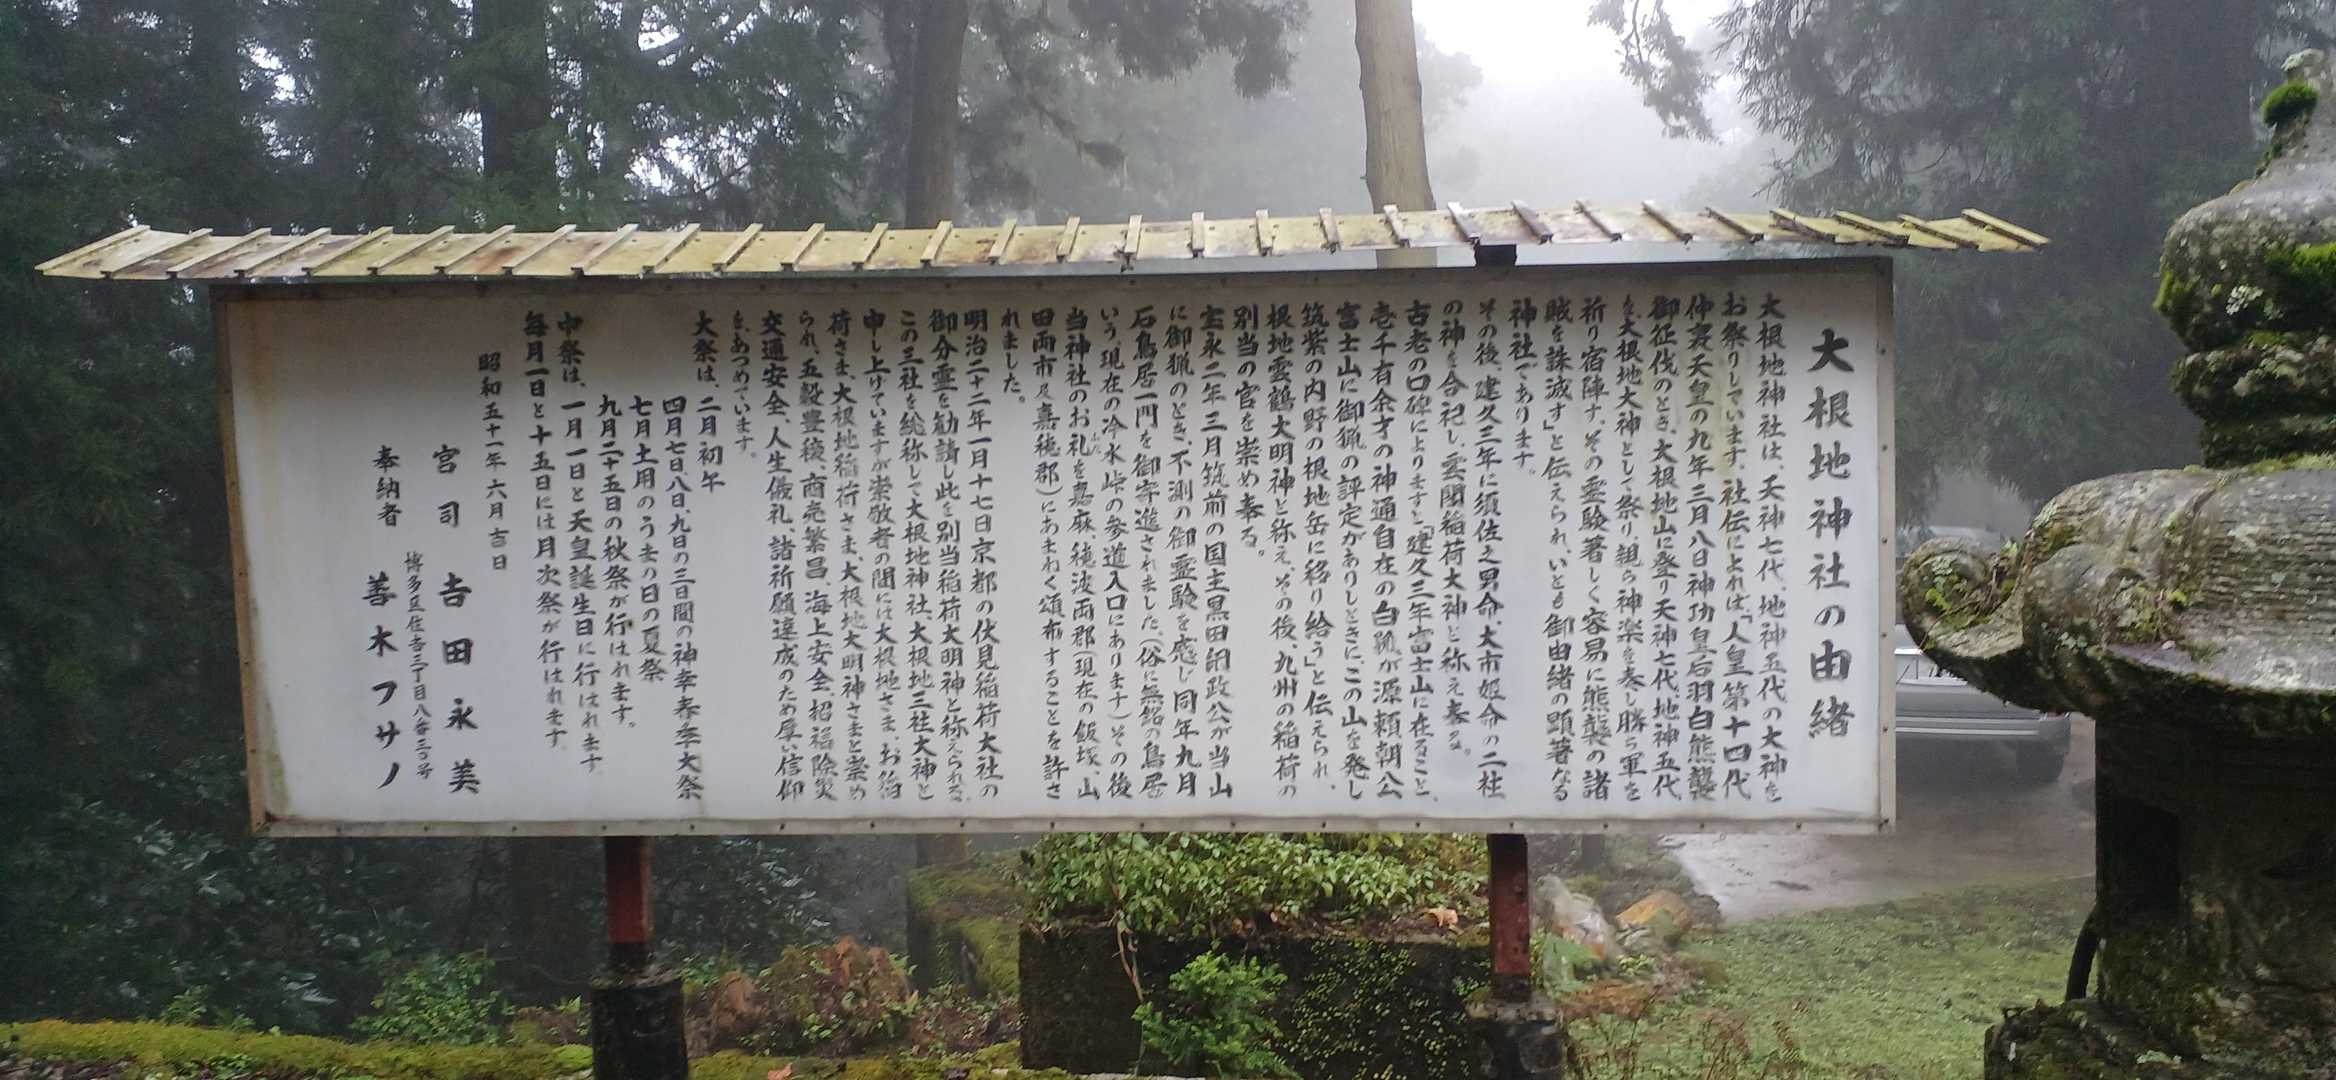 大根地神社の由緒
大根地神社は、天神七代、地神五代の大神を
お祭りしています。社伝によれば、「人皇第十四代
仲哀天皇の九年三月八日神功皇后羽白熊襲
御征伐のとき、大根地山に登り天神七代、地神五代、
を大根地大神として祭り、親ら神楽を奏し勝ら軍を
祈り宿陣す、その霊験著しく容易に熊襲の諸
賊を誅滅す」と伝えられ、いとも御由緒の顕著なる
神社であります。
その後、建久三年に須佐之男命、大市姫命の二社
の神を合祀し、雲閣稲荷大神と称え奉る。
古老の口碑によりますと、「建久三年富士山に在ること、
壱千有余才の神通自在の白狐が源頼朝公
富士山に御猟の評定がありしときに、この山を発し
筑紫の内野の根地岳に移り給う」と伝えられ、
根地雲鶴大明神と称え、その後、九州の稲荷の
別当の宮を崇め奉る。
宝永二年三月筑前の国主黒田綱政公が当山
に御猟のとき、不測の御霊験を感じ同年九月
石鳥居一門を御寄進されました、(俗に無銘の鳥居
いう、現在の冷水峠の参道入口にあります)その後
当神社のお礼を嘉麻、穂波両郡(現在の飯塚、山
田両市及嘉穂郡)にあまねく頒布することを許さ
れました。
明治二十二年一月十七日京都の伏見稲荷大社の
御分霊を勧請し此を別当稲荷大明神と称えられる、
この三社を総称して大根地神社、大根地三社大神と
申し上げていますが崇敬者の間には大根地さま、お稲
荷さま、大根地稲荷さま、大根地大明神さまと崇め
られ、五穀豊穣、商売繁昌、海上安全、招福除災
交通安全、人生儀礼、諸祈願達成のため厚い信仰
を、あつめています。
大祭は、二月初午
四月七日、八日、九日の三日間の神幸春季大祭
七月土用のうまの日の夏祭
九月二十五日の秋祭が行はれます。
中祭は、一月一日と天皇誕生日に行はれます
毎月一日と十五日には月次祭が行はれます。
昭和五十一年六月吉日
宮司 吉田永美
博多区住吉三丁目八番三号
奉納者 善木フサノ